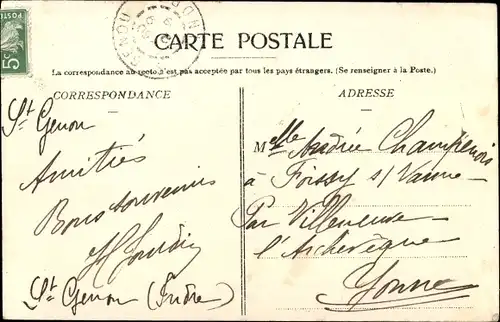 5c
CARTE POSTALE
La correspondance au recto n'est pas acceptée par tous les pays étrangers. (Se renseigner à la Poste.)
CORRESPONDANCE
St Genou
Amitiés
Bons souvenirs
St Genou (Indre)
ADRESSE
Melle Andrée Champenois
à Foissy s/ Vanne
Par Villeneuve
l'Archevêque
Yonne